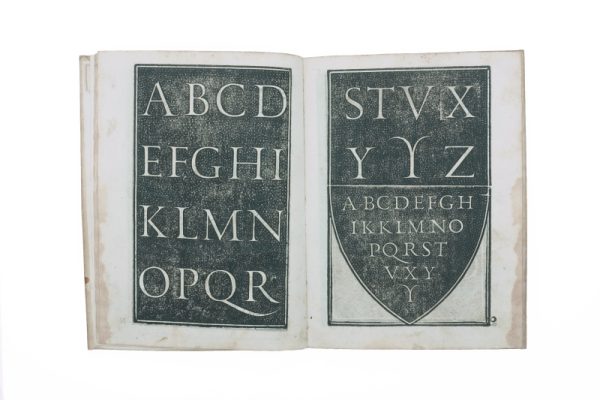 ABCD
EFGHI
KLMN
OPQR
STVX
YYZ
ABCDEFGH
IKKLMNO
PQRST
VXYY
Y